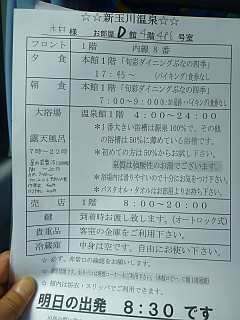 ☆☆新玉川温泉☆☆
様 お部屋 D館 階 号室
フロント 1階 内線8番
夕食 本館1階「旬彩ダイニングぶなの四季」
17:45~ バイキング食事なし
朝食 本館1階「旬彩ダイニングぶなの四季」
7:00~9:00
大浴場 温泉館1階 4:00~24:00
*1番大きい浴槽は源泉100%で、その他
の浴槽は50%に薄めている浴槽です。
露天風呂 *初めての方は50%からお試し下さい。
7時~22時 泉質は強酸性のお湯でございます。
*お浴場内は滑りやすいので十分にお気をつけ下さい
*バスタオル・タオルはお部屋よりお持ち下さい。
売店 1階 8:00~20:00
鍵 到着時お渡し致します。(オートロック式)
貴重品 客室の金庫をご利用下さい。
冷蔵庫 中身は空です。自由にお使い下さい。
☆必ず、非常口の確認をお願い致します。
☆館内は浴衣・スリッパでご利用できます。
明日の出発 8:30 です